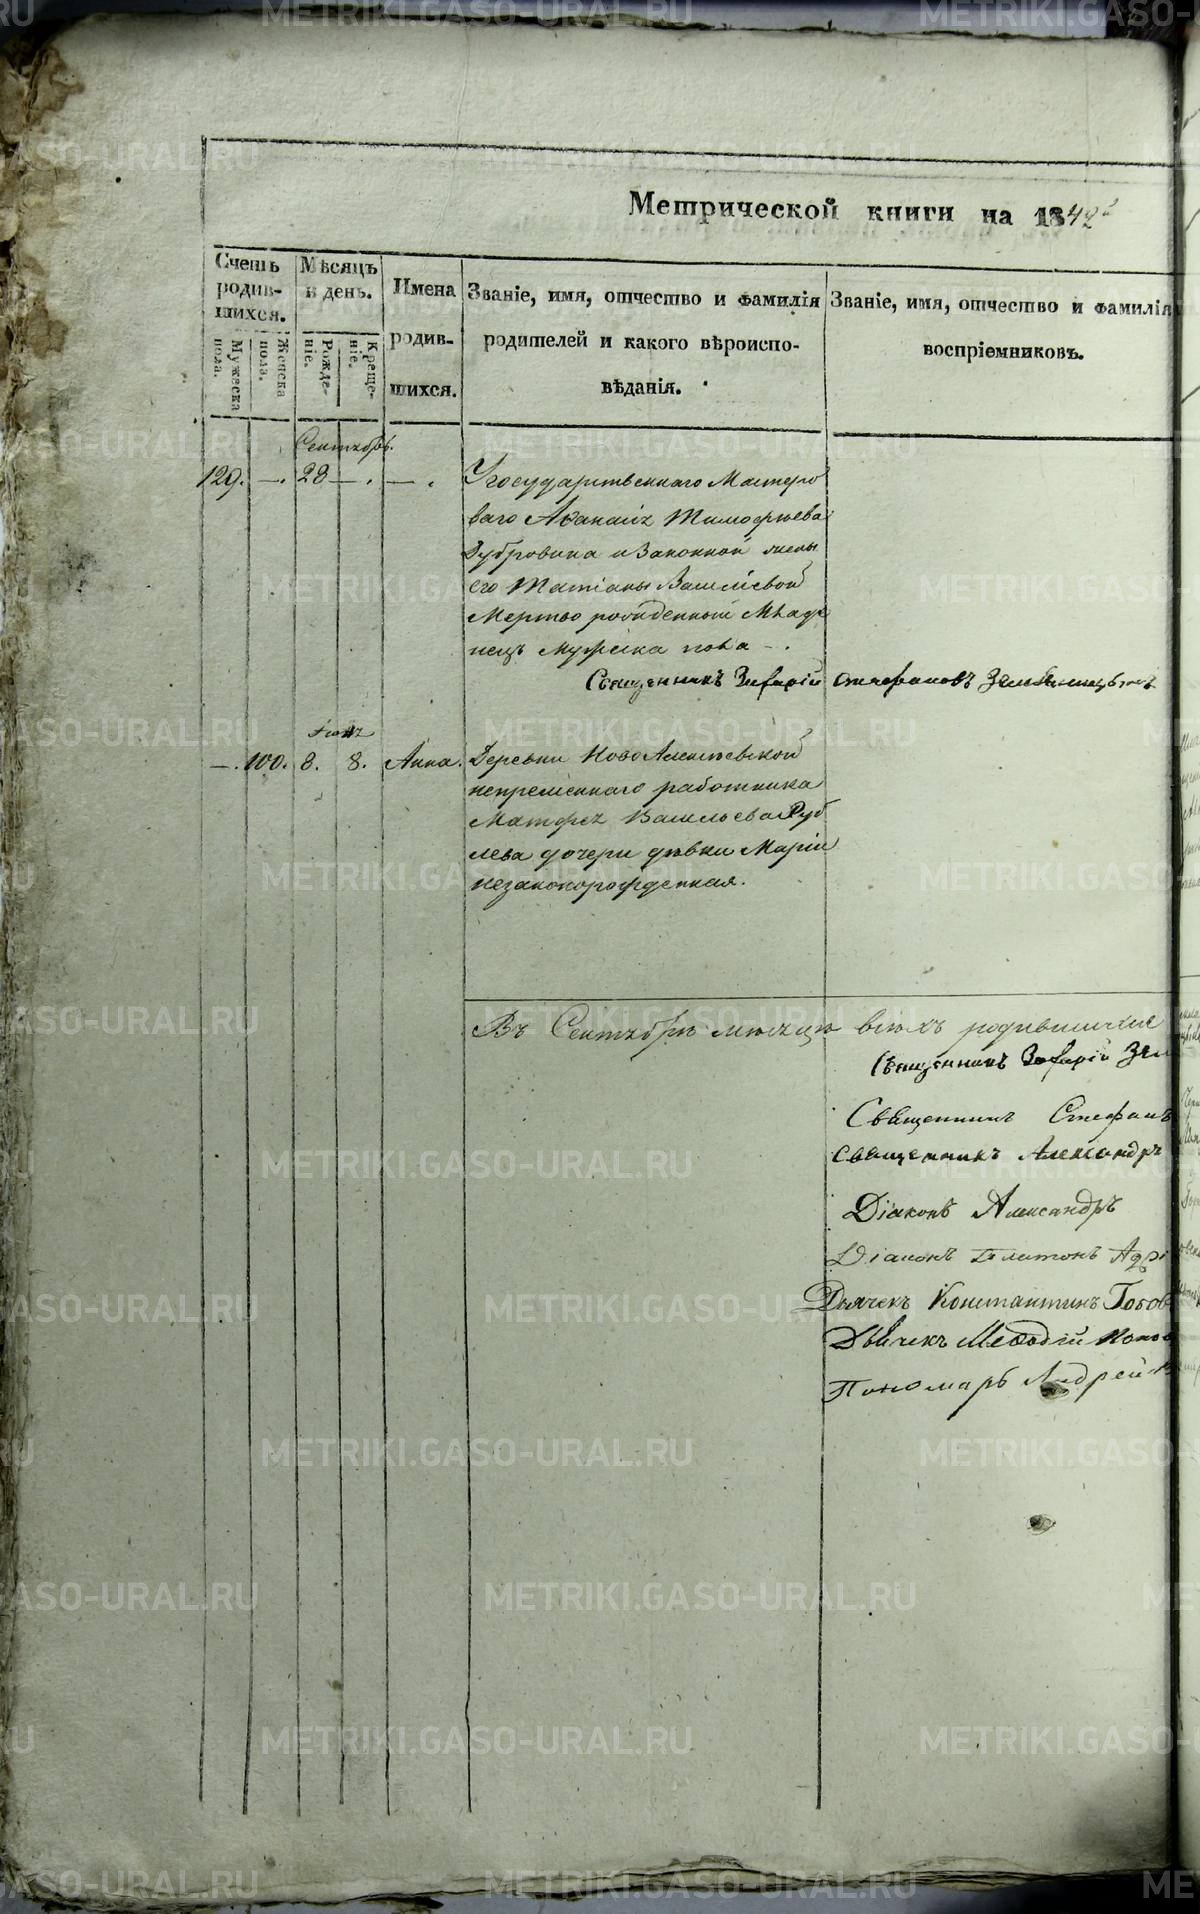 Метрической книги на 1842й
Счетъ родив-шихся.
Мужеска пола.
Женска пола.
Мѣсяцъ и день.
Рожде-ніе.
Креще-ніе.
Имена
родив-
шихся.
Званіе, имя, отчество и фамилія
родителей и какого вѣроиспо-
вѣданія.
Званіе, имя, отчество и фамилія
воспріемниковъ.
Сентябрь.
129. —. 28 —. —.
Государственнаго Мастеро
ваго Аѳанасія Тимофѣева
Дубровина и Законной жены
его Татіаны Васильевой
Мертво рожденный Младе
нецъ Мужеска пола —.
Священникъ Захарій Стефановъ
—. 100. 8. 8. Анна.
Деревни НовоАлексѣевской
непремѣннаго работника
Матфея Васильева Руб
лева дочери дѣвки Маріи
незаконорожденная.
Въ Сентябрѣ мѣсяцѣ всѣхъ родившихся
Священникъ Захарій Зем
Священникъ Стефанъ
Священникъ Александръ
Діаконъ Александръ
Діаконъ Платонъ
Дьячекъ Константинъ
Дьячекъ Меѳодій Попов
Пономарь Андрей
METRIKI.GASO-URAL.RU